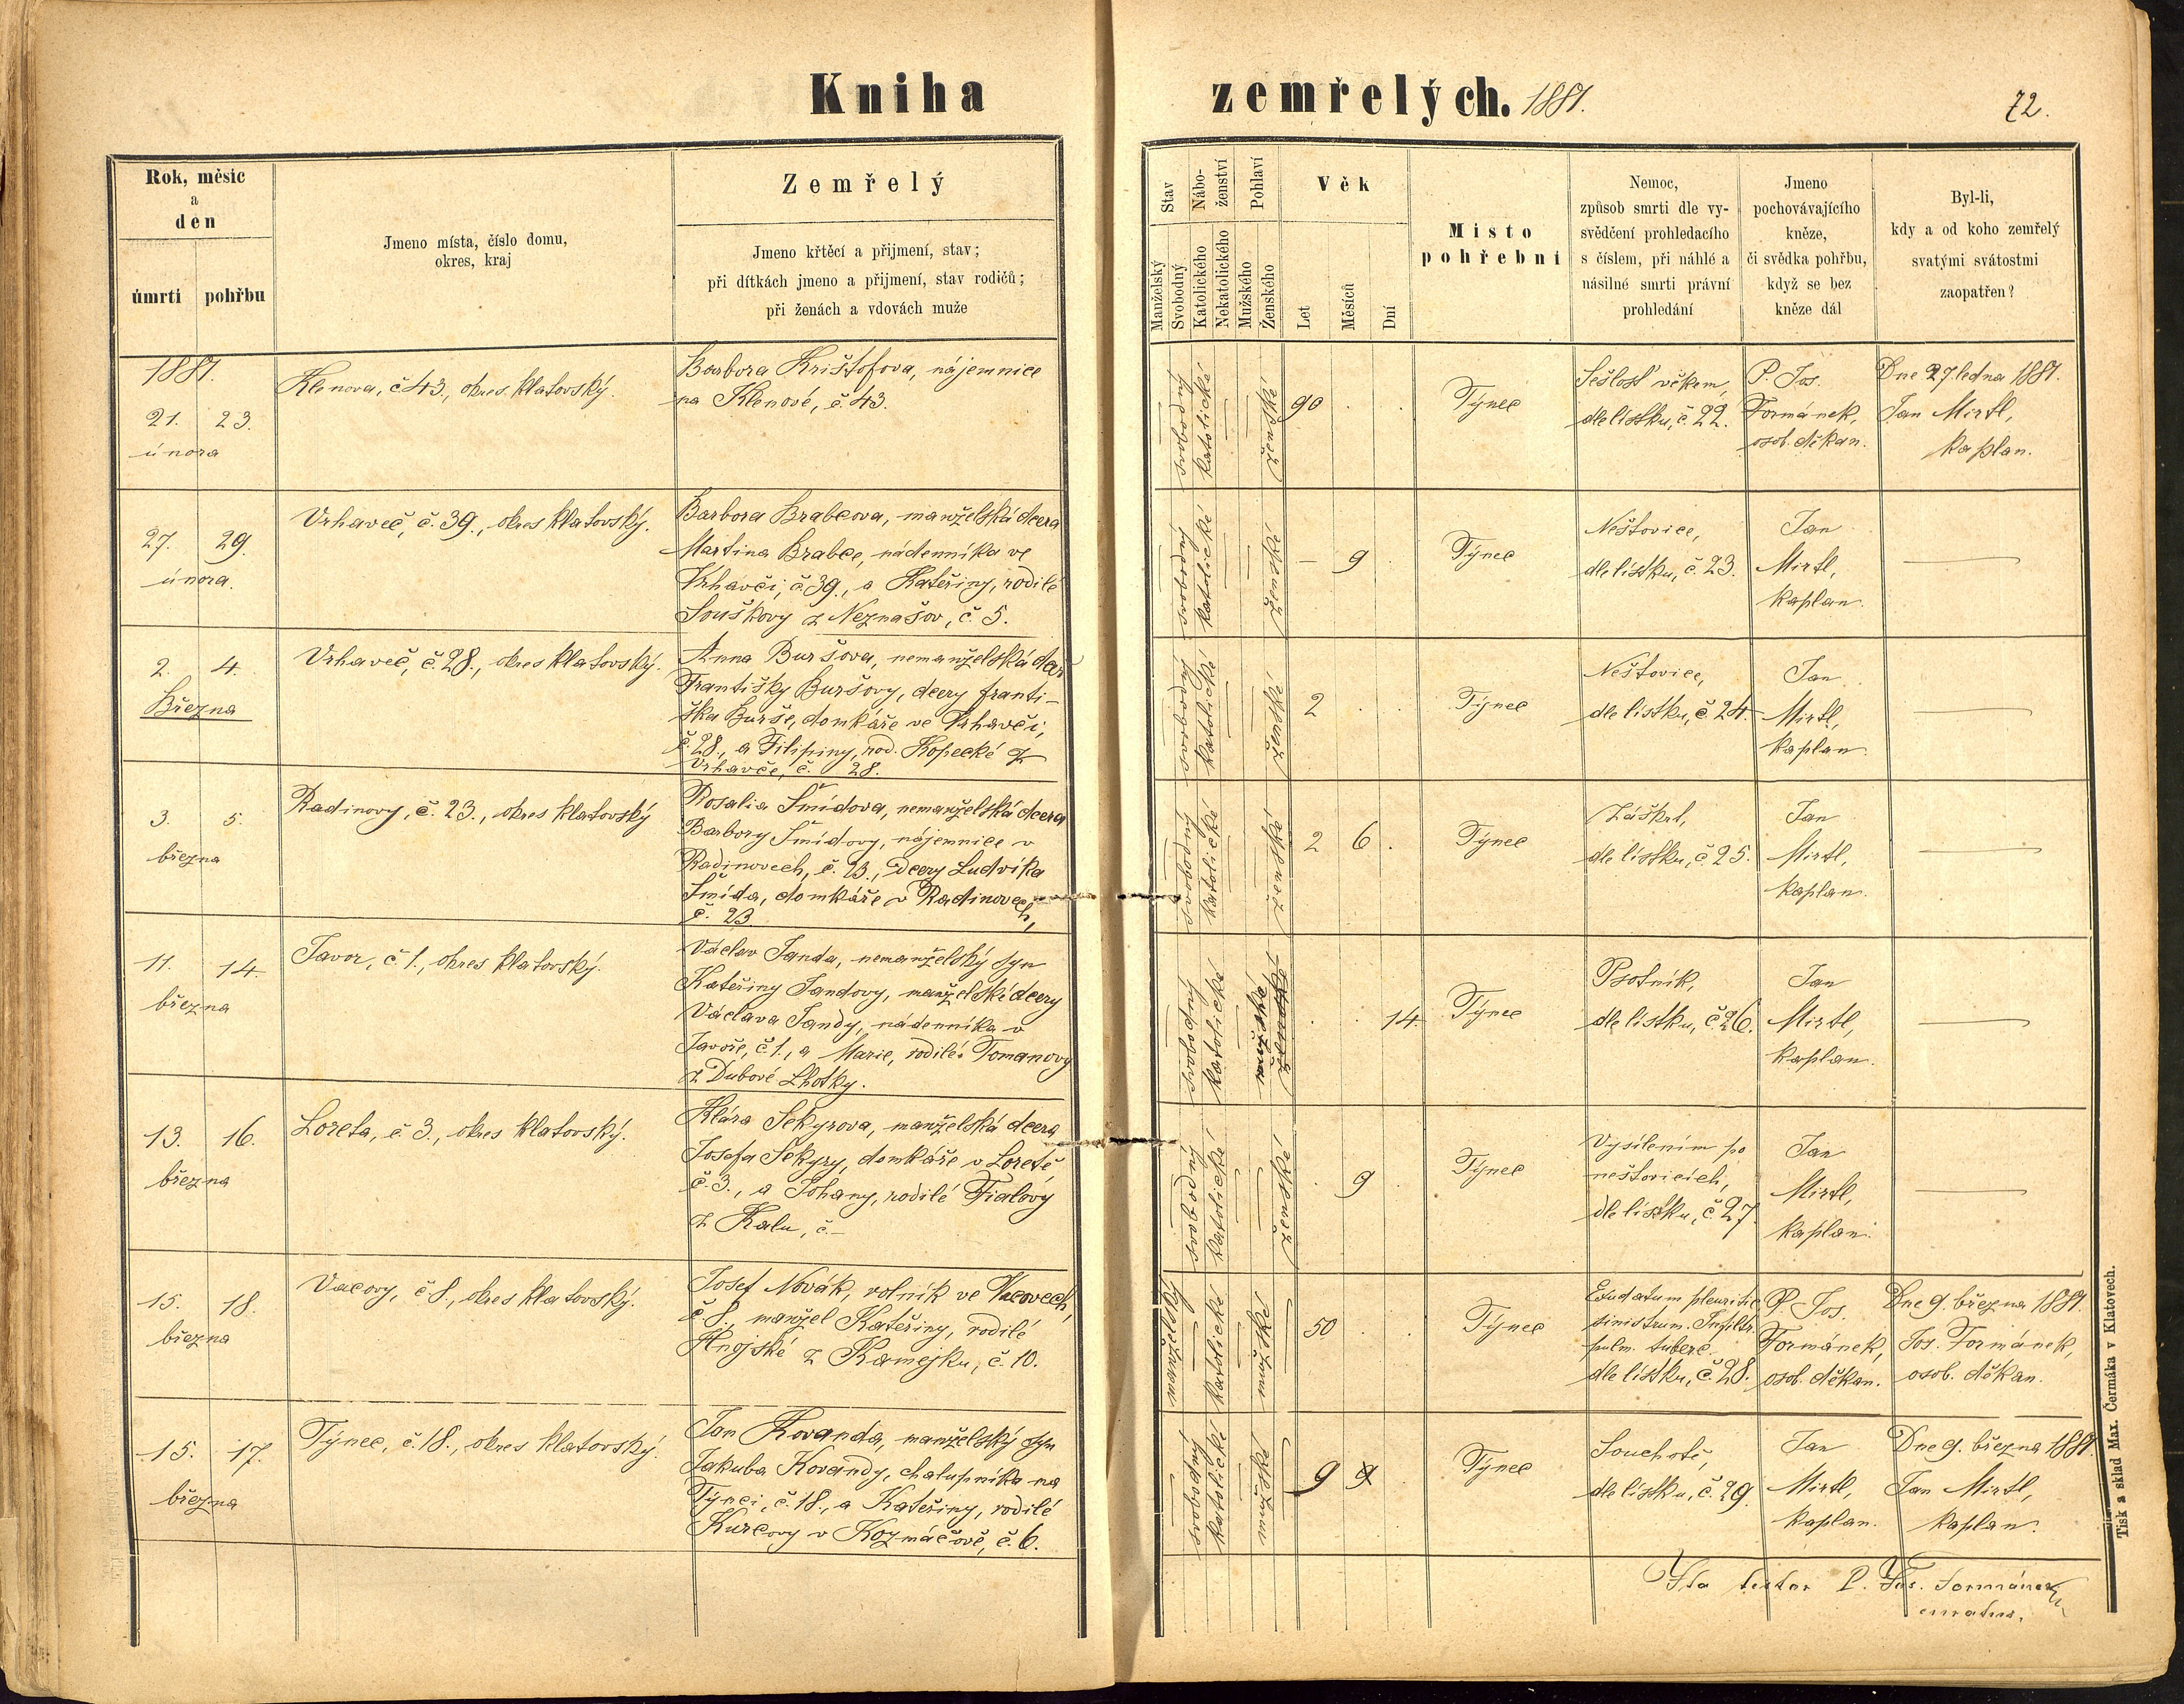 Kniha zemřelých. 1881.
72.
Rok, měsíc
a
den
úmrtí pohřbu
Jmeno místa, číslo domu,
okres, kraj
Zemřelý
Jmeno křtěcí a přijmení, stav;
při dítkách jmeno a přijmení, stav rodičů;
při ženách a vdovách muže
Stav
Manželský
Svobodný
Nábo-
ženství
Katolického
Nekatolického
Pohlaví
Mužského
Ženského
Věk
Let
Měsíců
Dní
Místo
pohřební
Nemoc,
způsob smrti dle vy-
svědčení prohledacího
s číslem, při náhlé a
násilné smrti právní
prohledání
Jmeno
pochovávajícího
kněze,
či svědka pohřbu,
když se bez
kněze dál
Byl-li,
kdy a od koho zemřelý
svatými svátostmi
zaopatřen?
1881.
21. 23.
února
Klenova, č 43., okres klatovský.
Barbora Krištofova, nájemnice
na Klenové, č. 43.
svobodný
katolické
ženské
90 . .
Týnec
Sešlosť věkem,
dle lístku, č. 22.
P. Jos.
Formánek,
osob. děkan.
Dne 27 ledna 1881.
Jan Mirtl,
kaplan.
27. 29.
února.
Vrhaveč, č. 39., okres klatovský.
Barbora Brabcova, manželská dcera
Martina Brabce, nádenníka ve
Vrhavči, č. 39., a Kateřiny, rodilé
Souškovy z Neznašov, č. 5.
svobodný
katolické
ženské
– 9 .
Týnec
Neštovice,
dle lístku, č. 23.
Jan
Mirtl,
kaplan.
—
2. 4.
Března
Vrhaveč, č. 28., okres klatovský.
Anna Buršova, nemanželská dcer
Františky Buršovy, dcery Franti-
ška Burše, domkáře ve Vrhavči,
č. 28., a Filipiny, rod. Kopecké z
Vrhavče, č. 28.
svobodný
katolické
ženské
2 . .
Týnec
Neštovice,
dle lístku, č. 24.
Jan
Mirtl,
kaplan.
—
3. 5.
března
Radinovy, č. 23., okres klatovský
Rosalia Šmídova, nemanželská dcera
Barbory Šmídovy, nájemnice v
Radinovech, č. 23., dcery Ludvíka
Šmída, domkáře v Radinovech,
č. 23
svobodný
katolické
ženské
2 6 .
Týnec
Záškrt,
dle lístku, č. 25.
Jan
Mirtl,
kaplan.
—
11. 14.
března
Javor, č. 1., okres klatovský.
Václav Janda, nemanželský syn
Kateřiny Jandovy, manželské dcery
Václava Jandy, nádenníka v
Javoře, č 1., a Marie, rodilé Tomanovy
z Dubové Lhotky.
svobodný
katolické
mužské
ženské
. . 14.
Týnec
Psotník,
dle lístku, č. 26.
Jan
Mirtl,
kaplan.
—
13. 16.
března
Loreta, č. 3., okres klatovský.
Klára Sekyrova, manželská dcera
Josefa Sekyry, domkáře v Loretě
č. 3., a Johany, rodilé Fialovy
z Kalu, č. –
svobodný
katolické
ženské
. 9
Týnec
Vysílením po
neštovicích,
dle lístku, č. 27.
Jan
Mirtl,
kaplan.
—
15. 18.
března
Vacovy, č. 8., okres klatovský.
Josef Novák, rolník ve Vacovech,
č. 8., manžel Kateřiny, rodilé
Hnojské z Kamejku, č. 10.
manželský
katolické
mužské
50 . .
Týnec
Exudatum pleuritic
sinistrum. Infiltr.
pulm. tuberc.
dle lístku, č. 28.
P. Jos.
Formánek,
osob. děkan.
Dne 9. března 1881.
Jos. Formánek,
osob. děkan.
15. 17.
března
Týnec, č. 18., okres klatovský.
Jan Kovanda, manželský syn
Jakuba Kovandy, chalupníka na
Týnci, č. 18., a Kateřiny, rodilé
Kurcovy v Kozmáčově, č. 6.
svobodný
katolické
mužské
9 9 .
Týnec
Souchotě,
dle lístku, č. 29.
Jan
Mirtl,
kaplan.
Dne 9. března 1881.
Jan Mirtl,
kaplan.
Ita testor P. Jos. Formánek
curatus.
Tisk a sklad Max. Čermáka v Klatovech.